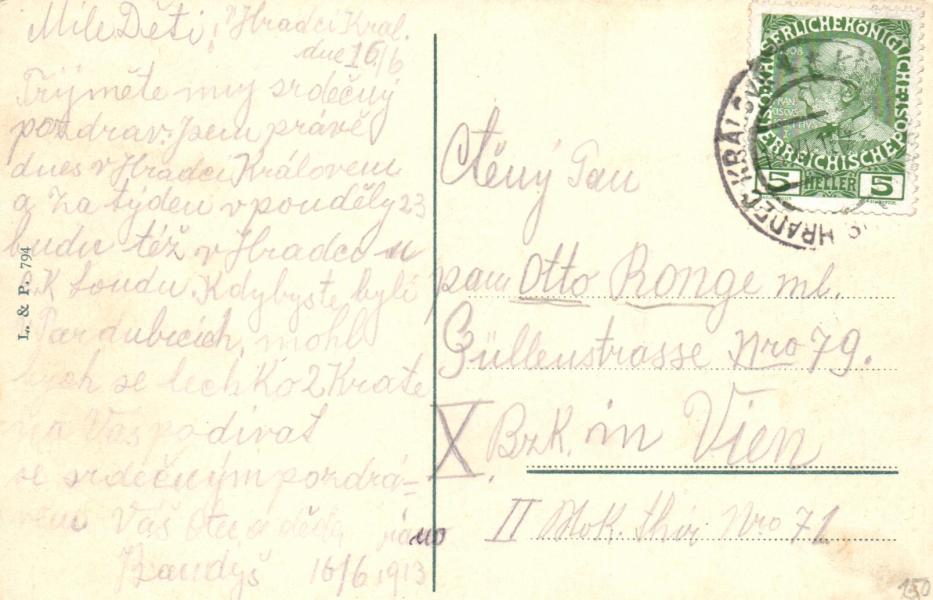 Milé Děti!
V Hradci Král.
dne 16/6
Přijměte muj srdečný
pozdrav. Jsem právě
dnes v Hradci Královem
a za týden v ponděly 23
budu též v Hradci u
k Soudu. Kdybyste byli
Pardubicich, mohl
bych se lechko 2 Krate
na Vás podivat
se srdečným pozdrá-
Váš Otec a děda
Bandyš 16/6 1913
L. & P. 794
Ctěný Pan
pan Otto Ronge ml.
Güllenstrasse Nro 79.
X Bzk. in Vien
II Stok. thür Nro 71
KAISERLICHE KÖNIGLICHE ÖSTERREICHISCHE POST
1908
5 HELLER 5
HRADEC KRÁLOVÉ
150